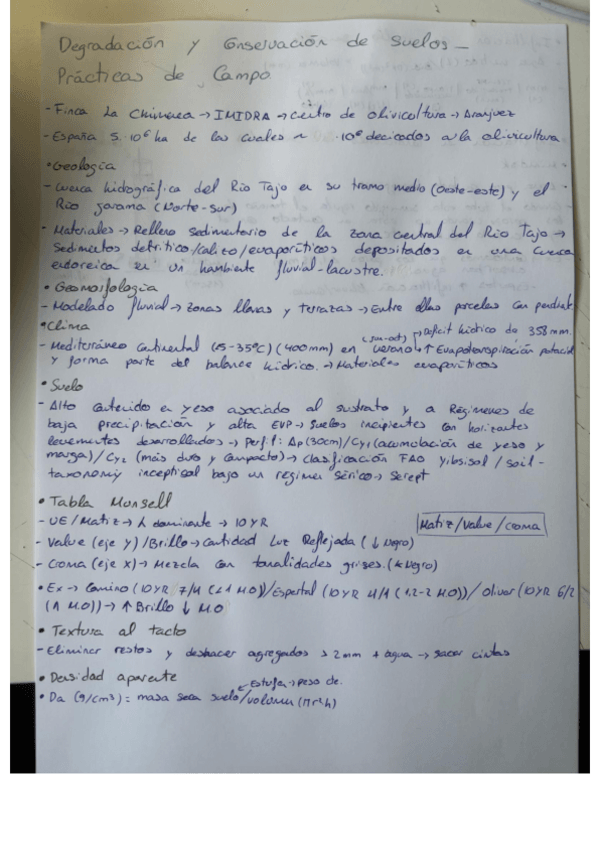 Degradación y Conservación de Suelos_
Prácticas de Campo
- Finca La Chimenea → IMIDRA → centro de olivicultura → Aranjuez
- España 5·10⁶ ha de las cuales ~ ·10⁶ decicados a la olivicultura
• Geología
- Cuenca hidrográfica del Río Tajo en su tramo medio (Oeste-este) y el
Río Jarama (Norte-Sur)
- Materiales → Relleno sedimentario de la zona central del Río Tajo →
Sedimentos detrítico/calizo/evaporíticos depositados en una cuenca
endorreica en un hambiente fluvial-lacustre.
• Geomorfología
- Modelado fluvial → zonas llanas y terrazas → Entre ellas parcelas con pendient
• Clima
(jun-oct) → Deficit hídrico de 358 mm.
- Mediterráneo Continental (15-35ºC) (400mm) en verano ↑ Evapotranspiración potencial
y forma parte del balance hídrico. → Materiales evaporíticos
• Suelo
- Alto contenido en yeso asociado al sustrato y a Regímenes de
baja precipitación y alta EVP → Suelos incipientes con horizontes
levementes desarrollados → Perfil: Ap (30cm)/Cy₁ (acumolación de yeso y
marga)/Cy₂ (más duro y compacto) → Clasificación FAO Yibsisol / Soil-
taxonomy inceptisol bajo un régimen Sérico → Serept
• Tabla Munsell
- UE/Matiz → λ dominante → 10YR
Matiz/Value/Croma
- Value (eje y)/Brillo → Cantidad Luz Reflejada (↓ Negro)
- Croma (eje x) → Mezcla con tonalidades grises. (Negro)
• Ex → Camino (10YR 7/4 (<1 M.O))/Espartal (10YR 4/4 (1,2-2 M.O))/Olivar (10YR 6/2
(1 M.O)) → ↑ Brillo ↓ MO
• Textura al tacto
- Eliminar restos y deshacer agregados > 2mm + agua → sacar cintas
• Densidad aparente
Estufa → peso cte.
• Da (g/cm³) = masa seca suelo/volumen (πr²h)